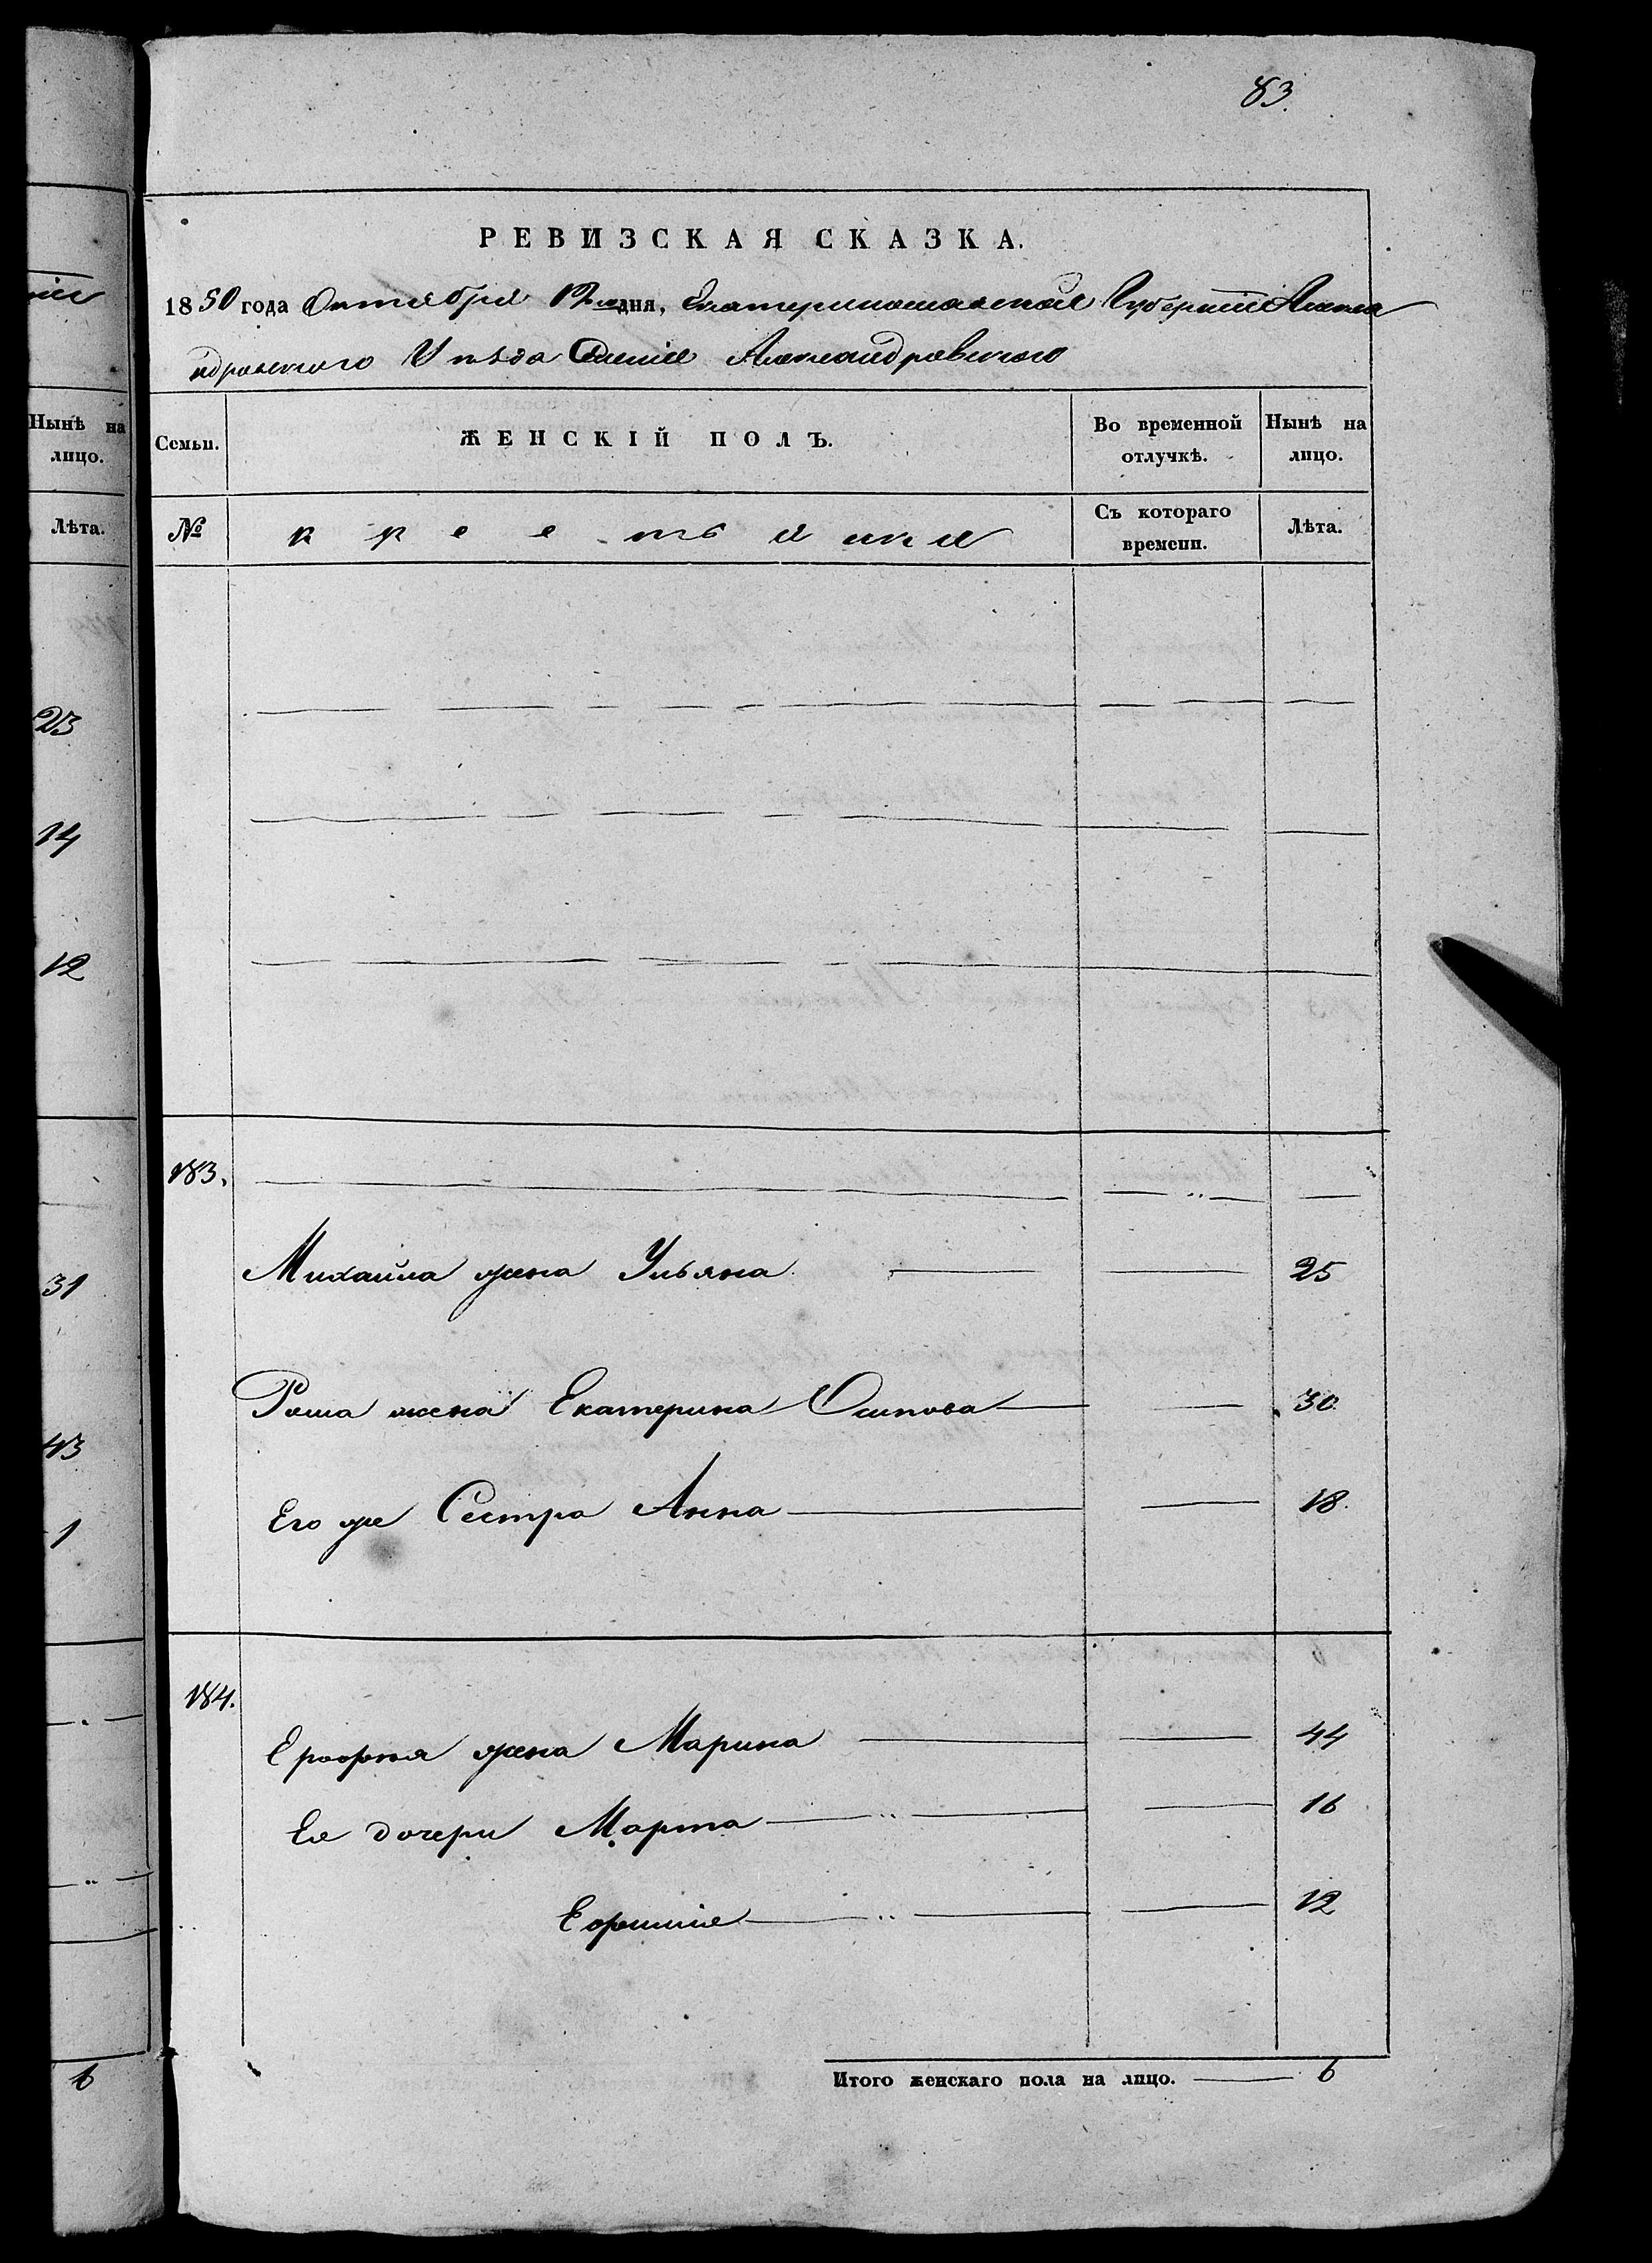 83.
РЕВИЗСКАЯ СКАЗКА.
1850 года Октября 12 дня, Екатеринославской Губернии Алекса
ндровского Уезда Александровского
Ныне на лицо.
Семьи.
ЖЕНСКІЙ ПОЛЪ.
Во временной отлучкѣ.
Нынѣ на лицо.
Лѣта.
№
Съ котораго времени.
Лѣта.
23
14
12
183.
31
Михайла жена Ульяна 25
43
жена Екатерина Осипова 30
1
Его же Сестра Анна 18.
184.
Ерофея жена Марина 44
Ея дочери Марта 16
Ефимия 12
6
Итого женскаго пола на лицо. 6